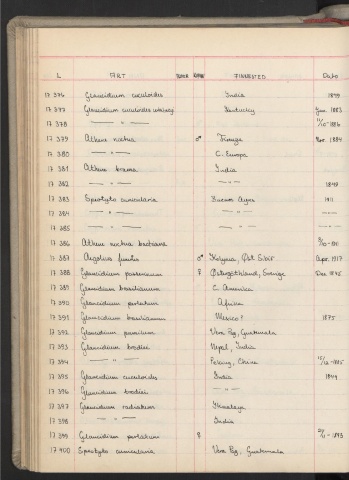 L ART KJØNN FINNESTED Dato
17 376 Glaucidium cuculoides India 1849
17 377 Glaucidium cuculoides Jan. 1883
17 378 — " — 1886
17 379 Athene noctua ♂ Firenze Nov. 1884
17 380 — " — C. Europa
17 381 Athene brama India
17 382 — " — — " — 1849
17 383 Speotyto cunicularia Buenos Ayres 1911
17 384 — " — — " — — " —
17 385 — " — — " — — " —
17 386 Athene noctua bactriana
17 387 Aegolius funereus ♂ Kolyma Øst Sibir Apr. 1917
17 388 Glaucidium passerinum ♀ Østergöthland, Sverige Dec. 1845
17 389 Glaucidium brasilianum C. America
17 390 Glaucidium perlatum Africa
17 391 Glaucidium brasilianum Mexico? 1875
17 392 Glaucidium Vera Paz, Guatemala
17 393 Glaucidium brodiei Nepal, India
17 394 — " — Peking, China 1885
17 395 Glaucidium cuculoides India 1849
17 396 Glaucidium brodiei — " —
17 397 Glaucidium radiatum Himalaya
17 398 — " — India
17 399 Glaucidium perlatum ♀ 1893
17 400 Speotyto cunicularia Vera Paz, Guatemala